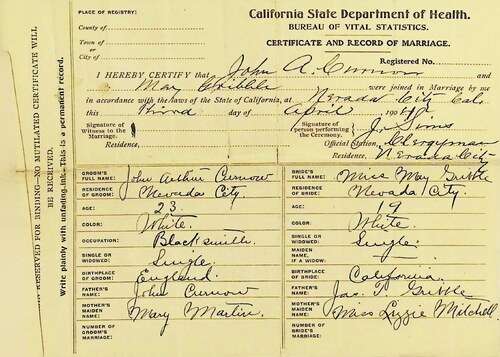 PLACE OF REGISTRY:
County of
Town of
or
City of
California State Department of Health.
BUREAU OF VITAL STATISTICS.
CERTIFICATE AND RECORD OF MARRIAGE.
Registered No.
I HEREBY CERTIFY that John A. Curnow and
May Gribble were joined in Marriage by me
in accordance with the laws of the State of California, at Nevada City Cal.
this Third day of April 190
Signature of
Witness to the
Marriage,
Residence,
Signature of
person performing
the Ceremony.
J. Sims
Official Station, Clergyman
Residence, Nevada City
GROOM'S
FULL NAME:
John Arthur Curnow
RESIDENCE
OF GROOM:
Nevada City.
AGE:
23
COLOR:
White.
OCCUPATION:
Blacksmith.
SINGLE OR
WIDOWED:
Single
BIRTHPLACE
OF GROOM:
England.
FATHER'S
NAME:
John Curnow
MOTHER'S
MAIDEN
NAME:
Mary Martin.
NUMBER OF
GROOM'S
MARRIAGE:
BRIDE'S
FULL NAME:
Miss May Gribble
RESIDENCE
OF BRIDE:
Nevada City.
AGE:
19
COLOR:
White.
SINGLE OR
WIDOWED:
Single.
MAIDEN
NAME, IF A
WIDOW:
BIRTHPLACE
OF BRIDE:
California.
FATHER'S
NAME:
Jas. T. Gribble
MOTHER'S
MAIDEN
NAME:
Miss Lizzie Mitchell
NUMBER OF
BRIDE'S
MARRIAGE:
RESERVED FOR BINDING—NO MUTILATED CERTIFICATE WILL
BE RECEIVED.
Write plainly with unfading ink—This is a permanent record.